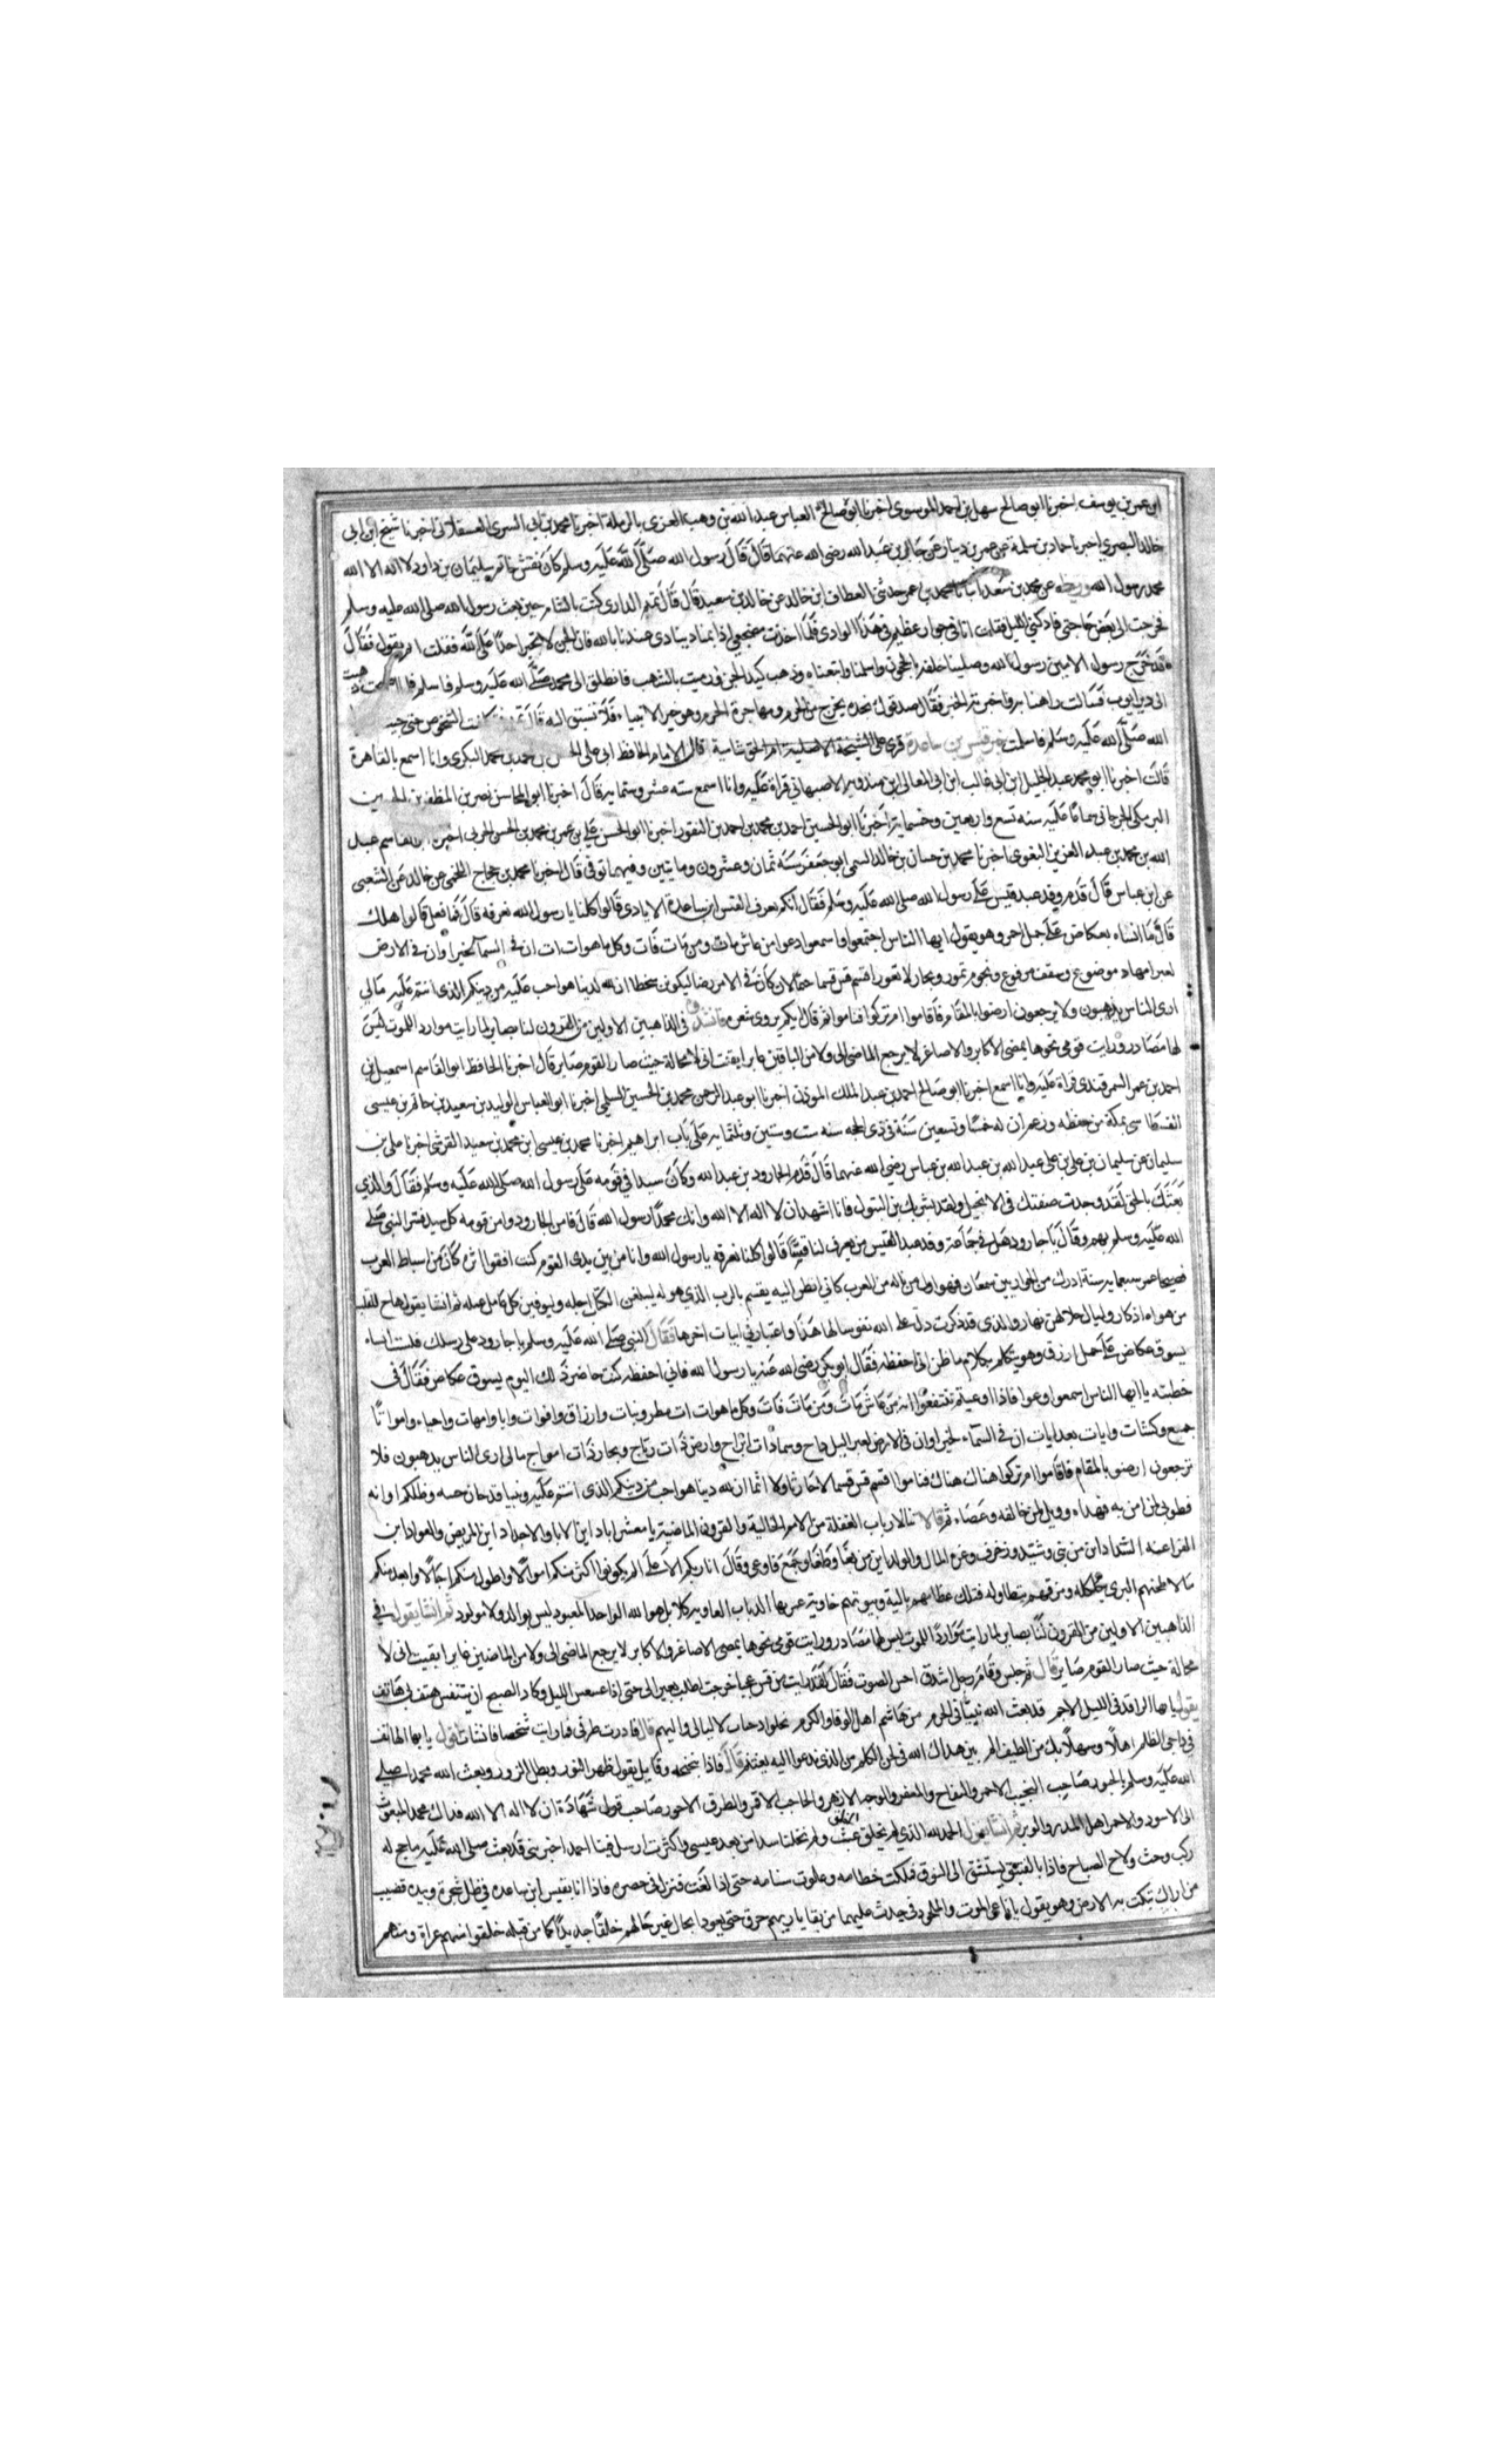 ابن عمر بن يوسف اخبرنا ابو صالح سهل بن احمد الموسوي اخبرنا ابو صالح العباس عبد الله بن وهب الغزي بالرملة اخبرنا محمد بن ابي السري العسقلاني اخبرنا شيخ ابن ابي
خالد البصري اخبرنا حماد بن سلمة عن عمرو بن دينار عن جابر بن عبد الله رضي الله عنهما قال قال رسول الله صلى الله عليه وسلم كان نقش خاتم سليمان بن داود لا اله الا الله
محمد رسول الله عن محمد بن سعد انبانا محمد بن عمر حدثني العطاف ابن خالد عن خالد بن سعيد قال قال تميم الداري كنت بالشام حين بعث رسول الله صلى الله عليه وسلم
فخرجت الى بعض حاجتي فادركني الليل فقلت انا في جوار عظيم هذا الوادي فلما اخذت مضجعي اذا بمناد ينادي عذ بالله فان الجن لا تجير احدا على الله فقلت ايم يقول فقال
قد خرج رسول الاميين رسول الله وصلينا خلفه بالحجون واسلمنا واتبعناه وذهب كيد الجن ورميت بالشهب فانطلق الى محمد صلى الله عليه وسلم فاسلم فلما اصبحت ذهبت
الى دير ايوب فسالت راهبا به واخبرته الخبر فقال صدقوك نجده يخرج من الحرم ومهاجره الحرم وهو خير الانبياء فلا تسبق اليه قال تميم فتكلفت الشخوص حتى جيت
الله صلى الله عليه وسلم فاسلمت خبر قيس بن ساعدة قرئ على الشيخة الاصلية ام الحق شامية قال الامام الحافظ ابي علي الحسن بن محمد بن محمد البكري وانا اسمع بالقاهرة
قالت اخبرنا ابو محمد عبد الجليل ابن ابي غالب ابن ابي المعالي ابن مندويه الاصبهاني قراة عليه وانا اسمع سنه عشر وستمايه قال اخبرنا ابو المحاسن نصر بن المظفر بن الحسين
البرمكي الجرجاني سماعا عليه سنه تسع واربعين وخمسمايه اخبرنا ابو الحسين احمد بن محمد بن احمد بن النقور اخبرنا ابو الحسن علي بن عمر بن محمد بن الحسن الحربي اخبرنا ابو القاسم عبد
الله بن محمد بن عبد العزيز البغوي اخبرنا محمد بن حسان بن خالد السمتي ابو جعفر سنه ثمان وعشرون ومايتين وفيها توفي قال اخبرنا محمد بن حجاج اللخمي عن خالد عن الشعبي
عن ابن عباس قال قدم وفد عبد قيس على رسول الله صلى الله عليه وسلم فقال ايكم يعرف القس ابن ساعدة الايادي قالوا كلنا يا رسول الله نعرفه قال فما فعل قالوا هلك
قال ما انساه بعكاض على جمل احمر وهو يقول ايها الناس اجتمعوا واسمعوا وعوا من عاش مات ومن مات فات وكل ما هوات ات ان في السمآ لخبرا وان في الارض
لعبرا مهاد موضوع وسقف مرفوع ونجوم تمور وبحار لا تغور اقسم قس قسما حقا لان كان في الامر رضا ليكونن سخطا ان لله لدينا هو احب عليه من دينكم الذي انتم عليه مالي
ارى الناس يذهبون ولا يرجعون ارضوا بالمقام فاقاموا ام تركوا فناموا ثم قال ايكم يروي شعره فانشدوه في الذاهبين الاولين من القرون لنا بصاير لما رايت مواردا للموت ليس
لها مصادر ورايت قومي نحوها يمضي الاكابر والاصاغر لا يرجع الماضي الي ولا من الباقين غابر ايقنت اني لا محالة حيث صار القوم صاير قال اخبرنا الحافظ ابو القاسم اسمعيل بن
احمد بن عمر السمرقندي قراة عليه وانا اسمع اخبرنا ابو صالح احمد بن عبد الملك الموذن اخبرنا ابو عبد الرحمن محمد بن الحسين السلمي اخبرنا ابو العباس الوليد بن سعيد بن حاتم بن عيسى
الفسطاسي بمكة من حفظه وزعم ان له خمسا وتسعين سنة في ذي الحجه سنه ست وستين وثلثمايه على باب ابراهيم اخبرنا محمد بن عيسى ابن محمد بن سعيد القرشي اخبرنا علي بن
سليمان عن سليمان بن علي بن علي عبد الله بن عبد الله بن عباس رضي الله عنهما قال قدم الجارود بن عبد الله وكان سيدا في قومه على رسول الله صلى الله عليه وسلم فقال والذي
بعثك بالحق لقد وجدت صفتك في الانجيل ولقد بشر بك ابن البتول فانا اشهد ان لا اله الا الله وانك محمدا رسول الله قال فامن الجارود وامن قومه كل سيد فسر النبي صلى
الله عليه وسلم بهم وقال يا جارود هل في جماعة وفد عبد القيس من يعرف لنا قيسا قالوا كلنا نعرفه يا رسول الله وانا من بين يدي القوم كنت اقفوا اثره كان من سباط العرب
فصيحا عمر سبعمايه سنة ادرك من الحواريين سمعان فهو اول من تاله من العرب كاني انظر اليه يقسم بالرب الذي هو له ليبلغن الكتاب اجله وليوفين كل عامل عمله ثم انشا يقول هاج للقلب
من هواه اذكار وليال خلالهن نهار والذي قد ذكرت دل على الله نفوسا لها هذا واعتبار في ابيات اخرها فقال النبي صلى الله عليه وسلم يا جارود على رسلك فلست انساه
بسوق عكاض على جمل ازرق وهو يتكلم بكلام ما ظن اني احفظه فقال ابو بكر رضي الله عنه يا رسول الله فاني احفظه كنت حاضر ذلك اليوم بسوق عكاض فقال في
خطبته يا ايها الناس اسمعوا وعوا فاذا اوعيتم تنتفعوا انه من عاش مات ومن مات فات وكل ما هوات ات مطر ونبات وارزاق واقوات واباء وامهات واحياء واموات
جميع وشتات وايات بعد ايات ان في السمآء لخبرا وان في الارض لعبر اليل داج وسما ذات ابراج وارض ذات رتاج وبحار ذات امواج مالي ارى الناس يذهبون فلا
يرجعون ارضو بالمقام فاقاموا ام تركوا هناك هناك فناموا اقسم قس قسما لا حانثا ولا اثما ان لله دينا هو احب من دينكم الذي انتم عليه ونبيا قد حان حينه وظلكم اوانه
فطوبى لمن امن به فهداه وويل لمن خالفه وعصاه ثم قال تبا لارباب الغفلة من الامم الخالية والقرون الماضية يا معشر اياد اين الابا والاجداد اين المريض والعواد اين
الفراعنه الشداد اين من بنى وشيد وزخرف وغره المال والولد اين من بغا وطغا وجمع فاوعى وقال انا ربكم الاعلى الم يكونوا اكثر منكم اموالا واطول منكم اجالا وابعد منكم
مالا طحنهم الثرى بكلكله ومزقهم بتطاوله فتلك عظامهم بالية وبيوتهم خاوية عمرتها الذباب العاويه كلا بل هو الله الواحد المعبود ليس بوالد ولا مولود ثم انشا يقول في
الذاهبين الاولين من القرون لنا بصاير لما رايت مواردا للموت ليس لها مصادر ورايت قومي نحوها يمضي الاصاغر والاكابر لا يرجع الماضي الي ولا من الماضين غابر ايقنت اني لا
محالة حيث صار القوم صاير قال ثم جلس وقام رجل اشدق احسن الصوت فقال لقد رايت من قس عجبا خرجت اطلب بعيرا لي حتى اذا عسعس الليل وكاد الصبح ان يتنفس هتف بي هاتف
يقول يا ايها الراقد في الليل الاجم قد بعث الله نبيا في الحرم من هاشم اهل الوفا والكرم يجلوا دجات الليالي والبهم قال فادرت طرفي فما رايت شخصا فانشات اقول يا ايها الهاتف
في داجي الظلم اهلا وسهلا بك من الطيف الم بين هداك الله في لحن الكلم من الذي تدعوا اليه يغتنم قال فاذا بنحنحه وقايل يقول ظهر النور وبطل الزور وبعث الله محمدا صلى
الله عليه وسلم بالحبور صاحب النجيب الاحمر والتاج والمغفر والوجه الازهر والحاجب الاقمر والطرف الاحور صاحب قول شهادة ان لا اله الا الله فذاك محمد المبعوث
الى الاسود والاحمر اهل المدر والوبر ثم انشا يقول الحمد لله الذي لم يخلق الخلق عبث ولم يخلنا سدا من بعد عيسى واكترث ارسل فينا احمد اخير نبي قد بعث صلى الله عليه ما حج له
ركب وحث ولاح الصباح فاذا بالفنيق يشقشق الى النوق فملكت خطامه وعلوت سنامه حتى اذا لغب فنزل في خضره فاذا انا بقيس ابن ساعده في ظل شجرة وبيده قضيب
من اراك ينكت به الارض وهو يقول يا ناعي الموت والملحود في جدث عليهما من بقايا ثيابهم خرق حتى يعودوا بحال غير حالهم خلقا جديدا كما من قبله خلقوا منهم عراة ومنهم